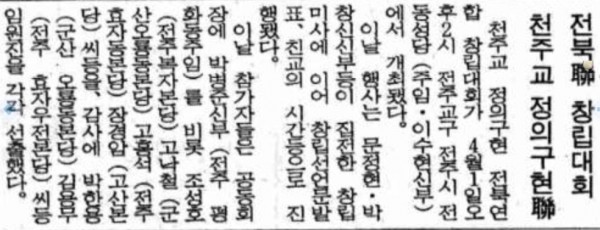 전북聯 창립대회
천주교 정의구현聯
천주교 정의구현 전북연
합 창립대회가 4월1일오
후2시 전주교구 전주시 전
동성당 (주임·이수현신부)
에서 개최됐다.
이날 행사는 문정현·박
창신신부등이 집전한 창립
미사에 이어 창립선언문발
표, 친교의 시간등으로 진
행됐다.
이날 참가자들은 공동회
장에 박병준신부 (전주 평
화동주임)를 비롯 조성호
(전주복자본당) 고남철 (군
산오룡동본당) 고흥석 (전주
효자동본당) 장경암 (고산본
당) 씨등을, 감사에 박한용
(군산 오룡동본당) 김용부
(전주 효자우전본당) 씨등
임원진을 각각 선출했다.